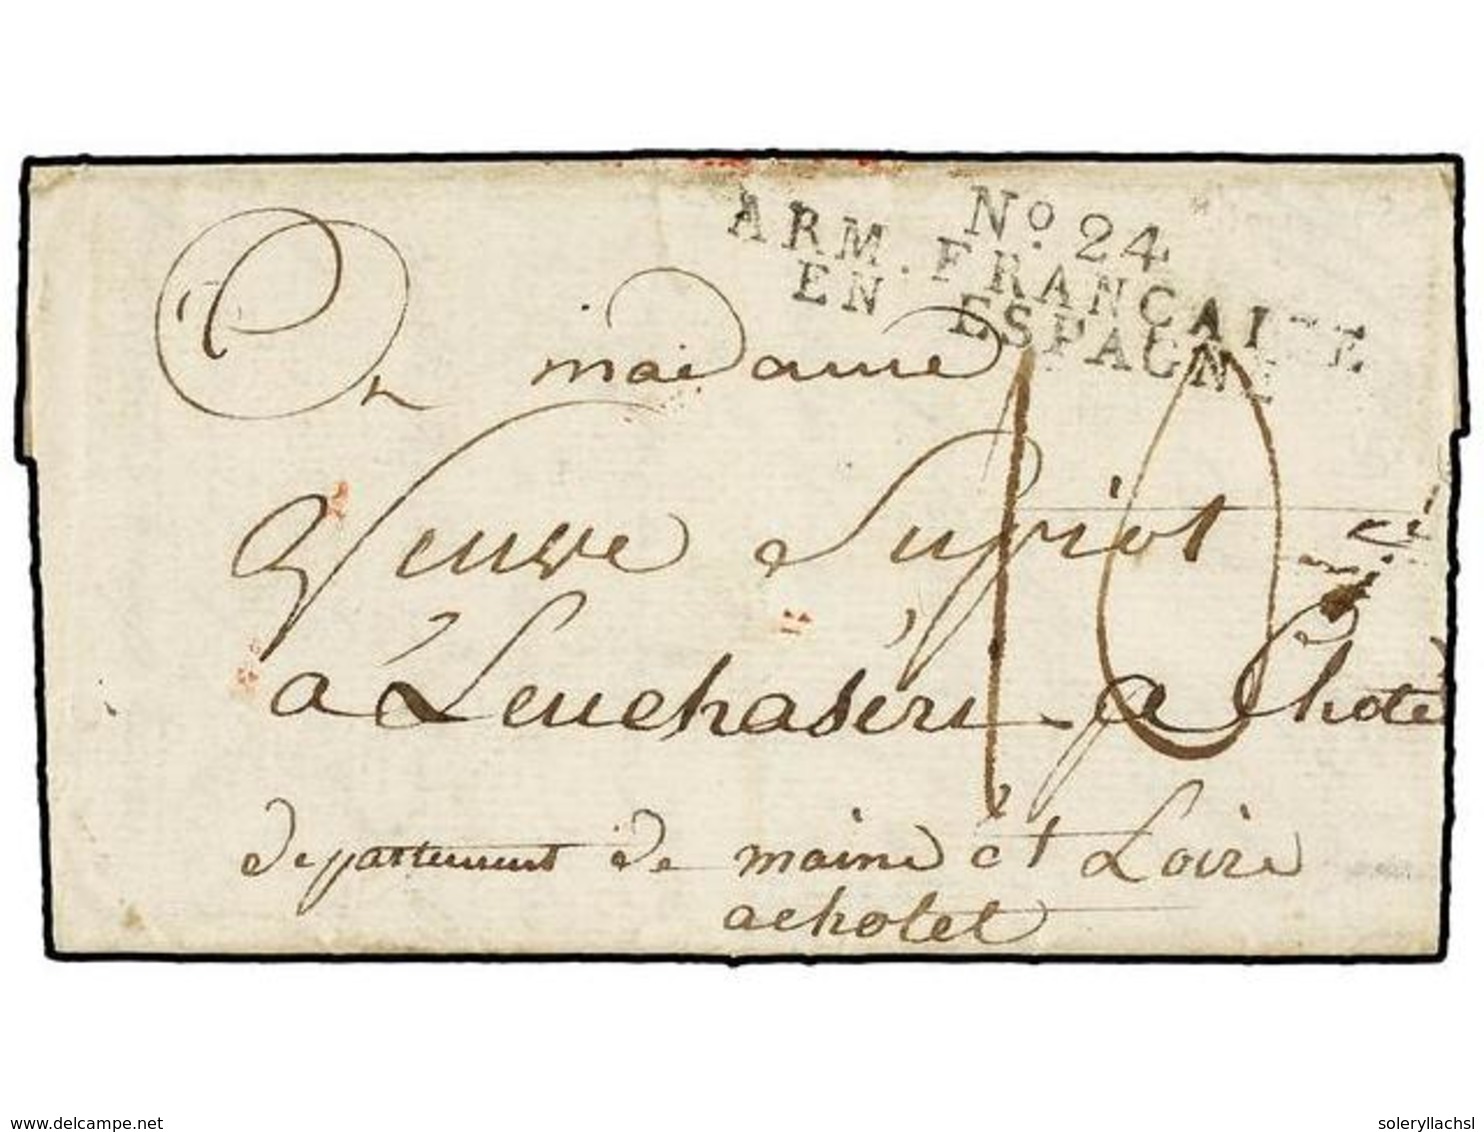 No. 24
ARM. FRANCAISE
EN ESPAGNE
A madame
Veuve Supiot
a Leuchaseri a Chote
departement de maine et Loire
acholet
10
delcampe.net
soleryllachsl